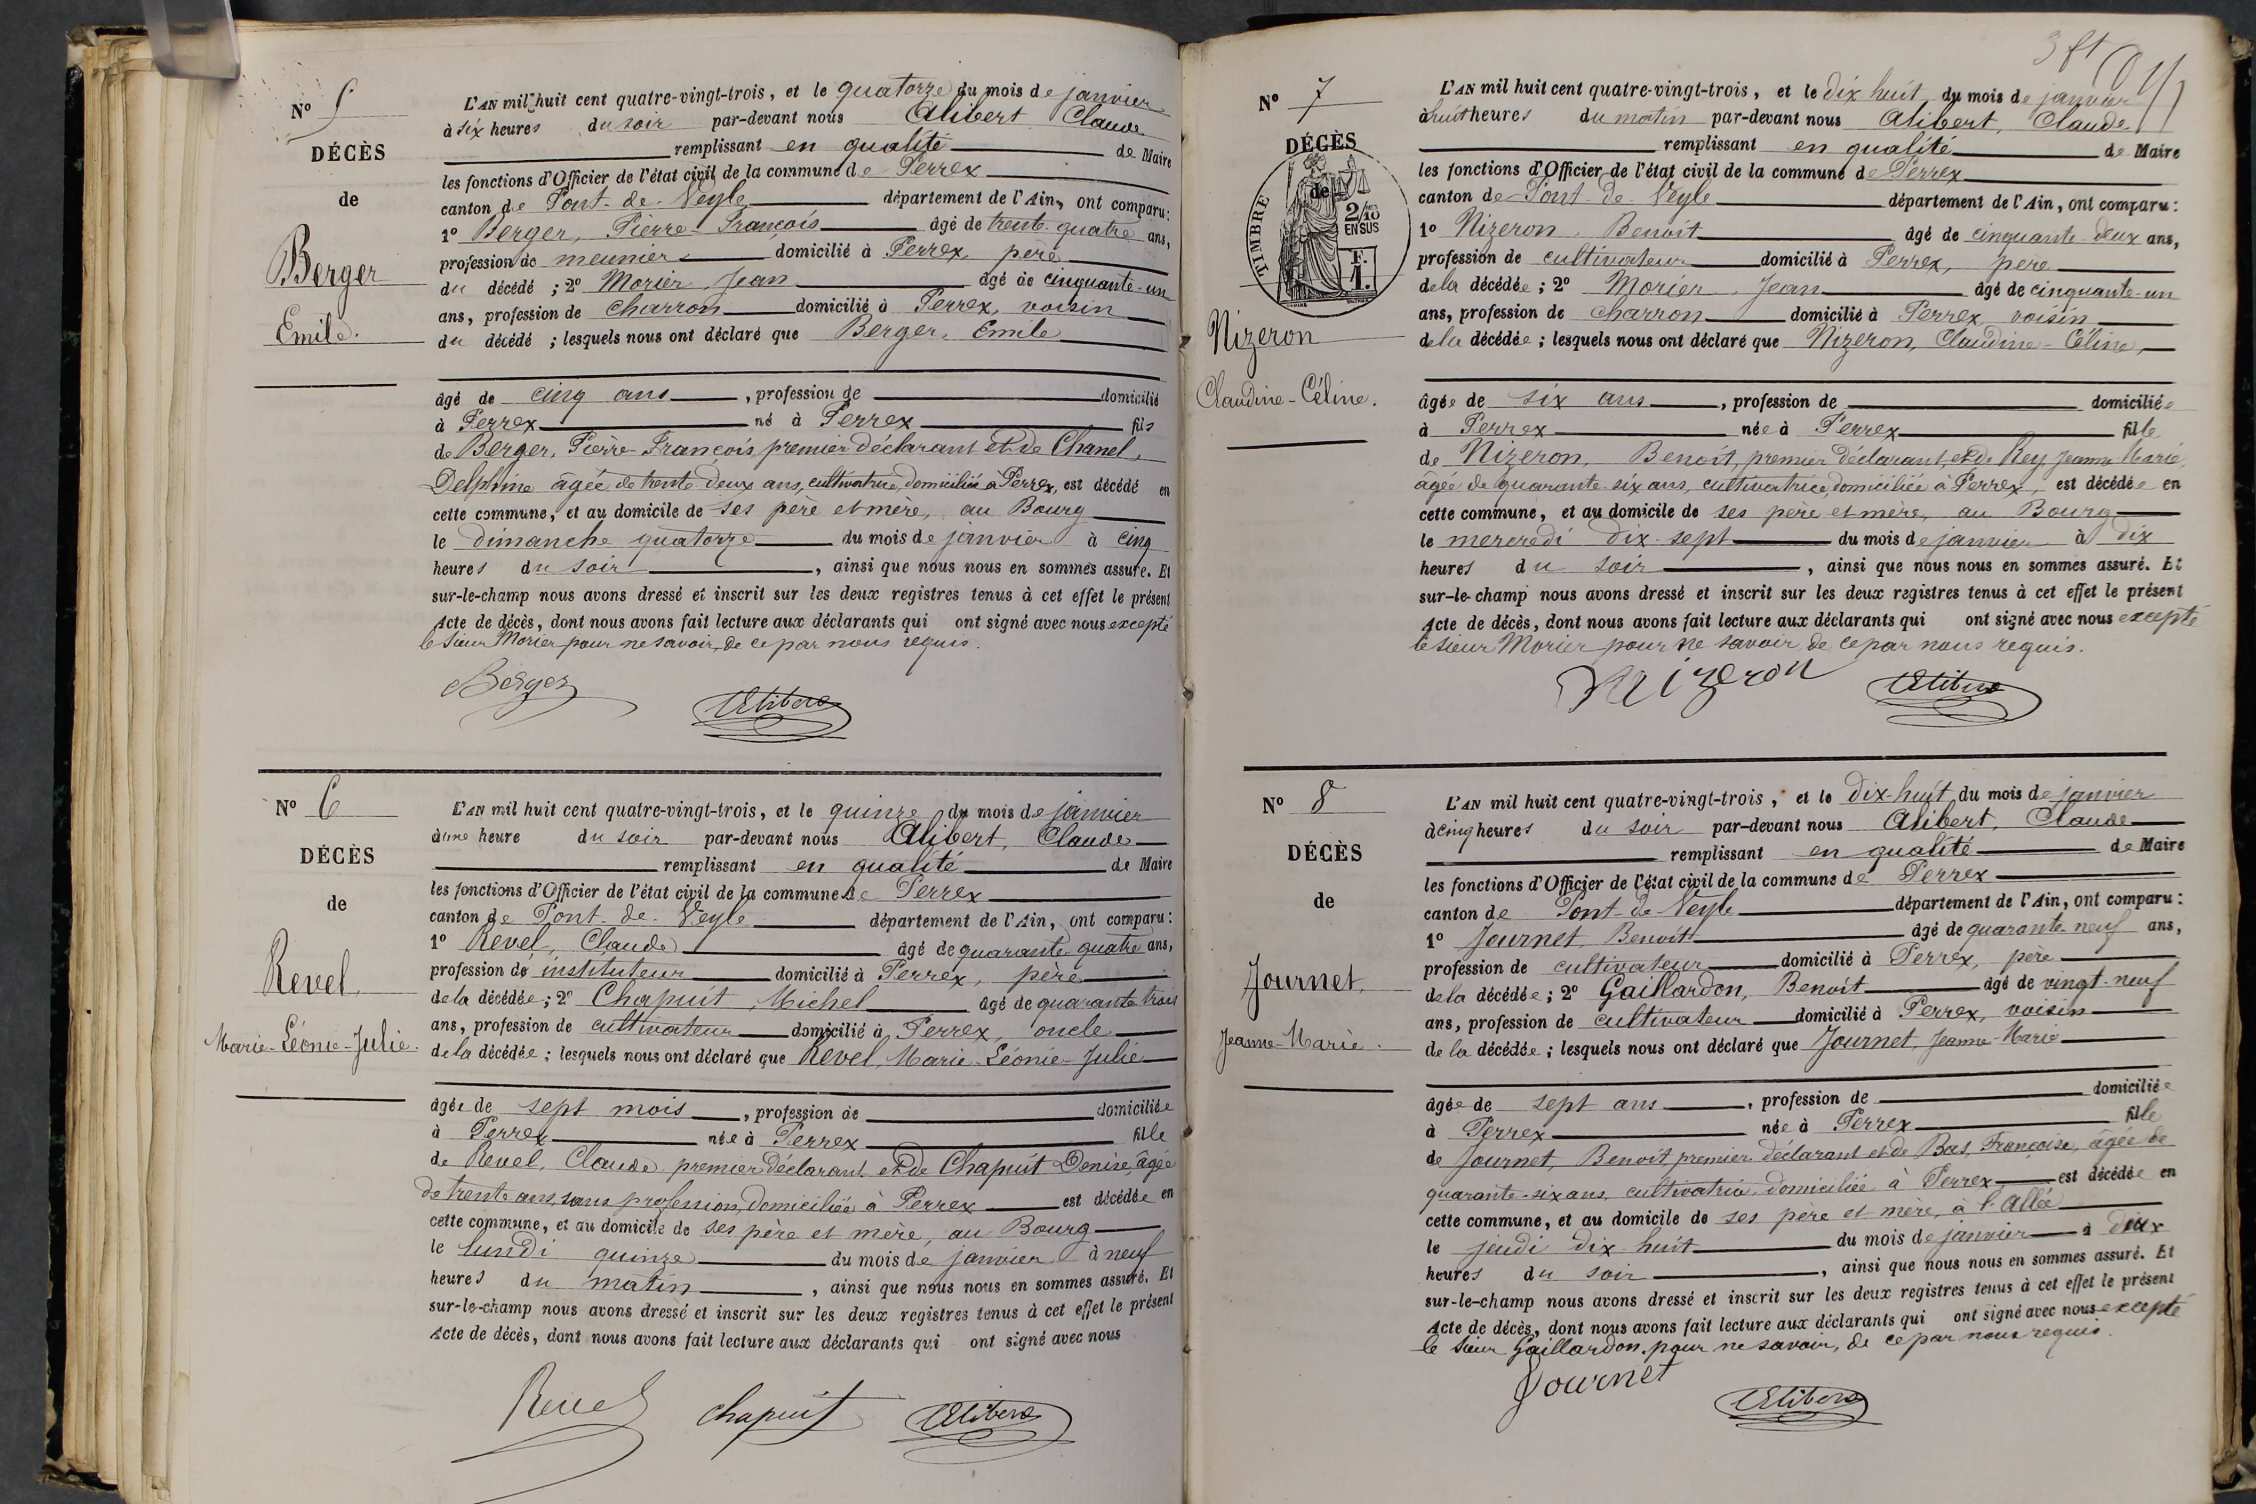 N° 5
DÉCÈS
de
Berger
Emile.
L'AN mil huit cent quatre-vingt-trois, et le quatorze du mois de janvier
à six heures du soir par-devant nous Alibert Claude
remplissant en qualité de Maire
les fonctions d'Officier de l'état civil de la commune de Perrex
canton de Pont-de-Veyle département de l'Ain, ont comparu:
1° Berger, Pierre François âgé de trente-quatre ans,
profession de meunier domicilié à Perrex, père
du décédé ; 2° Morier, Jean âgé de cinquante-un
ans, profession de charron domicilié à Perrex, voisin
du décédé ; lesquels nous ont déclaré que Berger, Emile
âgé de cinq ans, profession de domicilié
à Perrex né à Perrex fils
de Berger, Pierre-François premier déclarant et de Chanel,
Delphine âgée de trente-deux ans, cultivatrice, domiciliée à Perrex, est décédé en
cette commune, et au domicile de ses père et mère, au Bourg
le dimanche quatorze du mois de janvier à cinq
heures du soir, ainsi que nous nous en sommes assuré. Et
sur-le-champ nous avons dressé et inscrit sur les deux registres tenus à cet effet le présent
Acte de décès, dont nous avons fait lecture aux déclarants qui ont signé avec nous excepté
le sieur Morier pour ne savoir, de ce par nous requis.
Berger Alibert
N° 6
DÉCÈS
de
Revel
Marie-Léonie-Julie.
L'AN mil huit cent quatre-vingt-trois, et le quinze du mois de janvier
à une heure du soir par-devant nous Alibert, Claude
remplissant en qualité de Maire
les fonctions d'Officier de l'état civil de la commune de Perrex
canton de Pont-de-Veyle département de l'Ain, ont comparu:
1° Revel, Claude âgé de quarante-quatre ans,
profession de instituteur domicilié à Perrex, père
de la décédée ; 2° Chapuit, Michel âgé de quarante trois
ans, profession de cultivateur domicilié à Perrex, oncle
de la décédée ; lesquels nous ont déclaré que Revel, Marie-Léonie-Julie
âgée de sept mois, profession de domiciliée
à Perrex née à Perrex fille
de Revel, Claude premier déclarant et de Chapuit Denise, âgée
de trente ans, sans profession, domiciliée à Perrex est décédée en
cette commune, et au domicile de ses père et mère, au Bourg
le lundi quinze du mois de janvier à neuf
heures du matin, ainsi que nous nous en sommes assuré. Et
sur-le-champ nous avons dressé et inscrit sur les deux registres tenus à cet effet le présent
Acte de décès, dont nous avons fait lecture aux déclarants qui ont signé avec nous
Revel Chapuit Alibert
N° 7
DÉCÈS
de
TIMBRE
2/10 EN SUS
F. 1.
Nizeron
Claudine-Céline.
L'AN mil huit cent quatre-vingt-trois, et le dix huit du mois de janvier
à huit heures du matin par-devant nous Alibert, Claude
remplissant en qualité de Maire
les fonctions d'Officier de l'état civil de la commune de Perrex
canton de Pont-de-Veyle département de l'Ain, ont comparu:
1° Nizeron, Benoît âgé de cinquante-deux ans,
profession de cultivateur domicilié à Perrex, père
de la décédée ; 2° Morier, Jean âgé de cinquante-un
ans, profession de charron domicilié à Perrex, voisin
de la décédée ; lesquels nous ont déclaré que Nizeron, Claudine-Céline,
âgée de six ans, profession de domiciliée
à Perrex née à Perrex fille
de Nizeron, Benoît, premier déclarant, et de Rey Jeanne-Marie,
âgée de quarante-six ans, cultivatrice, domiciliée à Perrex, est décédée en
cette commune, et au domicile de ses père et mère, au Bourg
le mercredi dix-sept du mois de janvier à dix
heures du soir, ainsi que nous nous en sommes assuré. Et
sur-le-champ nous avons dressé et inscrit sur les deux registres tenus à cet effet le présent
Acte de décès, dont nous avons fait lecture aux déclarants qui ont signé avec nous excepté
le sieur Morier pour ne savoir, de ce par nous requis.
Nizeron Alibert
N° 8
DÉCÈS
de
Journet,
Jeanne-Marie.
L'AN mil huit cent quatre-vingt-trois, et le dix-huit du mois de janvier
à cinq heures du soir par-devant nous Alibert, Claude
remplissant en qualité de Maire
les fonctions d'Officier de l'état civil de la commune de Perrex
canton de Pont-de-Veyle département de l'Ain, ont comparu:
1° Journet, Benoît âgé de quarante-neuf ans,
profession de cultivateur domicilié à Perrex, père
de la décédée ; 2° Gaillardon, Benoît âgé de vingt-neuf
ans, profession de cultivateur domicilié à Perrex, voisin
de la décédée ; lesquels nous ont déclaré que Journet, Jeanne-Marie
âgée de sept ans, profession de domiciliée
à Perrex née à Perrex fille
de Journet, Benoît premier déclarant et de Bas, Françoise, âgée de
quarante-six ans, cultivatrice domiciliée à Perrex, est décédée en
cette commune, et au domicile de ses père et mère, à l'Allée
le jeudi dix-huit du mois de janvier à deux
heures du soir, ainsi que nous nous en sommes assuré. Et
sur-le-champ nous avons dressé et inscrit sur les deux registres tenus à cet effet le présent
Acte de décès, dont nous avons fait lecture aux déclarants qui ont signé avec nous excepté
le sieur Gaillardon, pour ne savoir, de ce par nous requis.
Journet Alibert